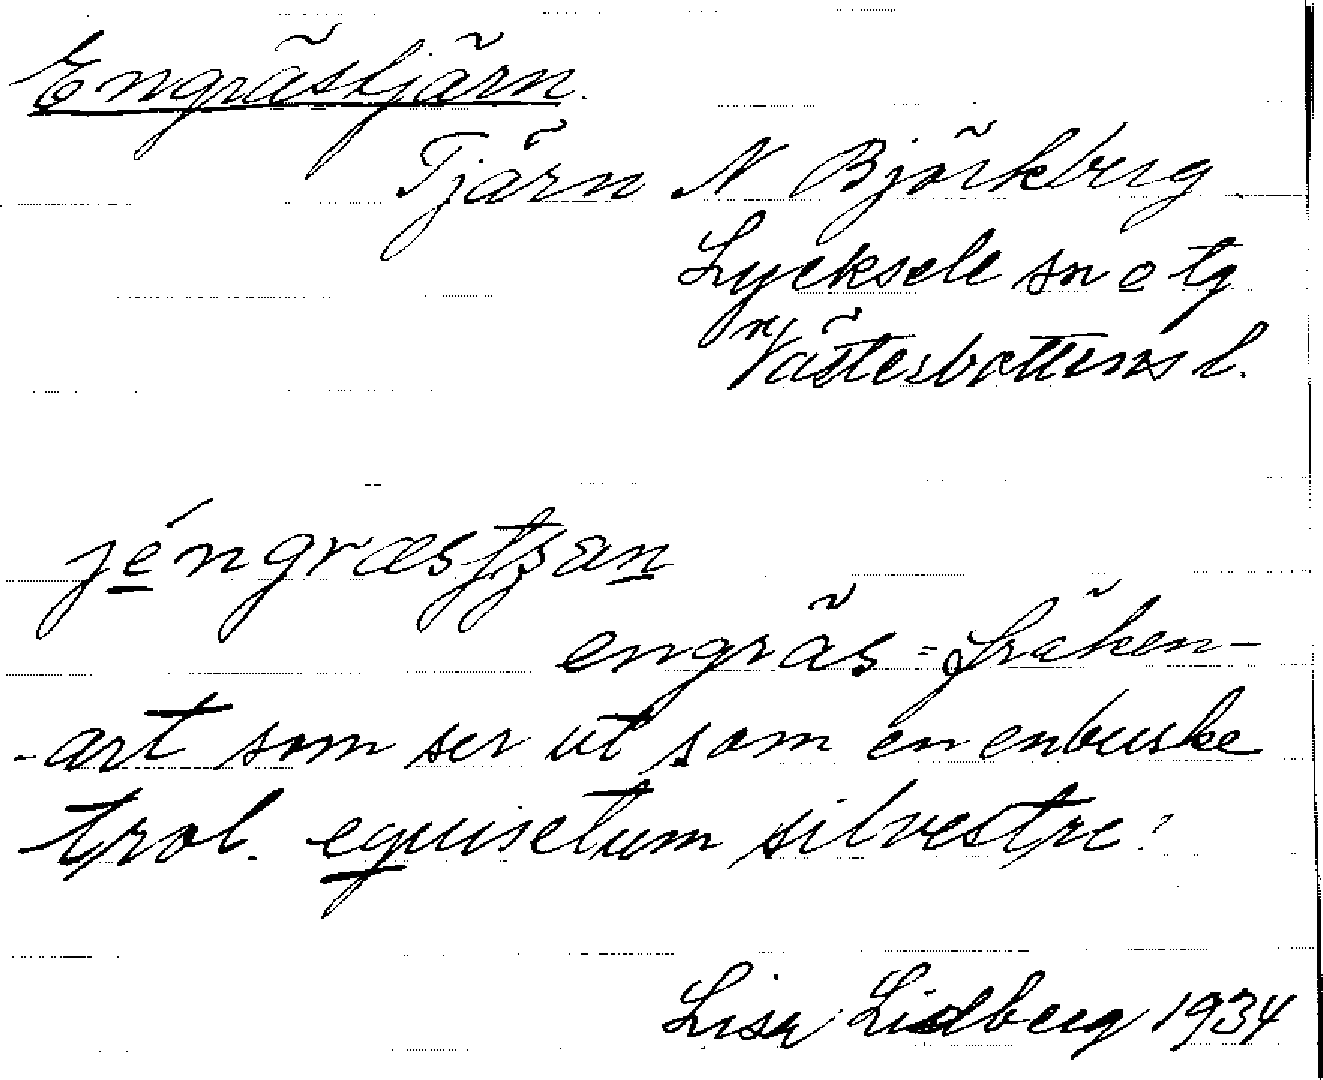 Engrästjärn.
Tjärn N Björkberg
Lycksele sn o tg
Västerbottens l.
engräs = fräken-
-art som ser ut som en enbuske
trol. equisetum silvestre!
Lisa Lidberg 1934